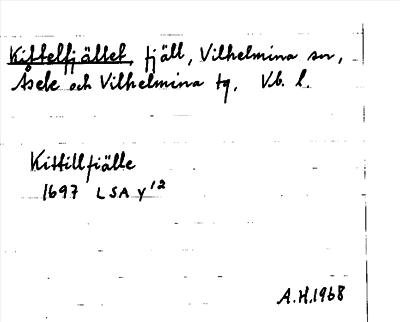 Kittelfjället, fjäll, Vilhelmina sn,
Åsele och Vilhelmina tg, Vb. l.
Kittillfiälle
1697 LSA Y12
A.H.1968